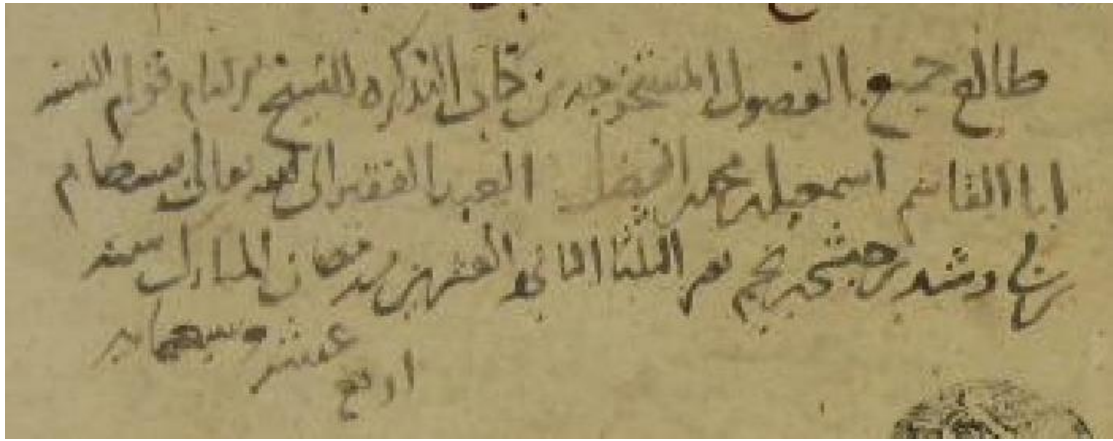 طالع جميع الفصول المستخرجه من كتاب التذكره للشيخ الامام قوام السنه
ابا القاسم اسمعيل بن محمد بن الفضل العبد الفقير الى الله تعالى بسطام
بن يوم الثلثا الثاني والعشرين من رمضان المبارك سنه
اربع عشر وسبعمايه